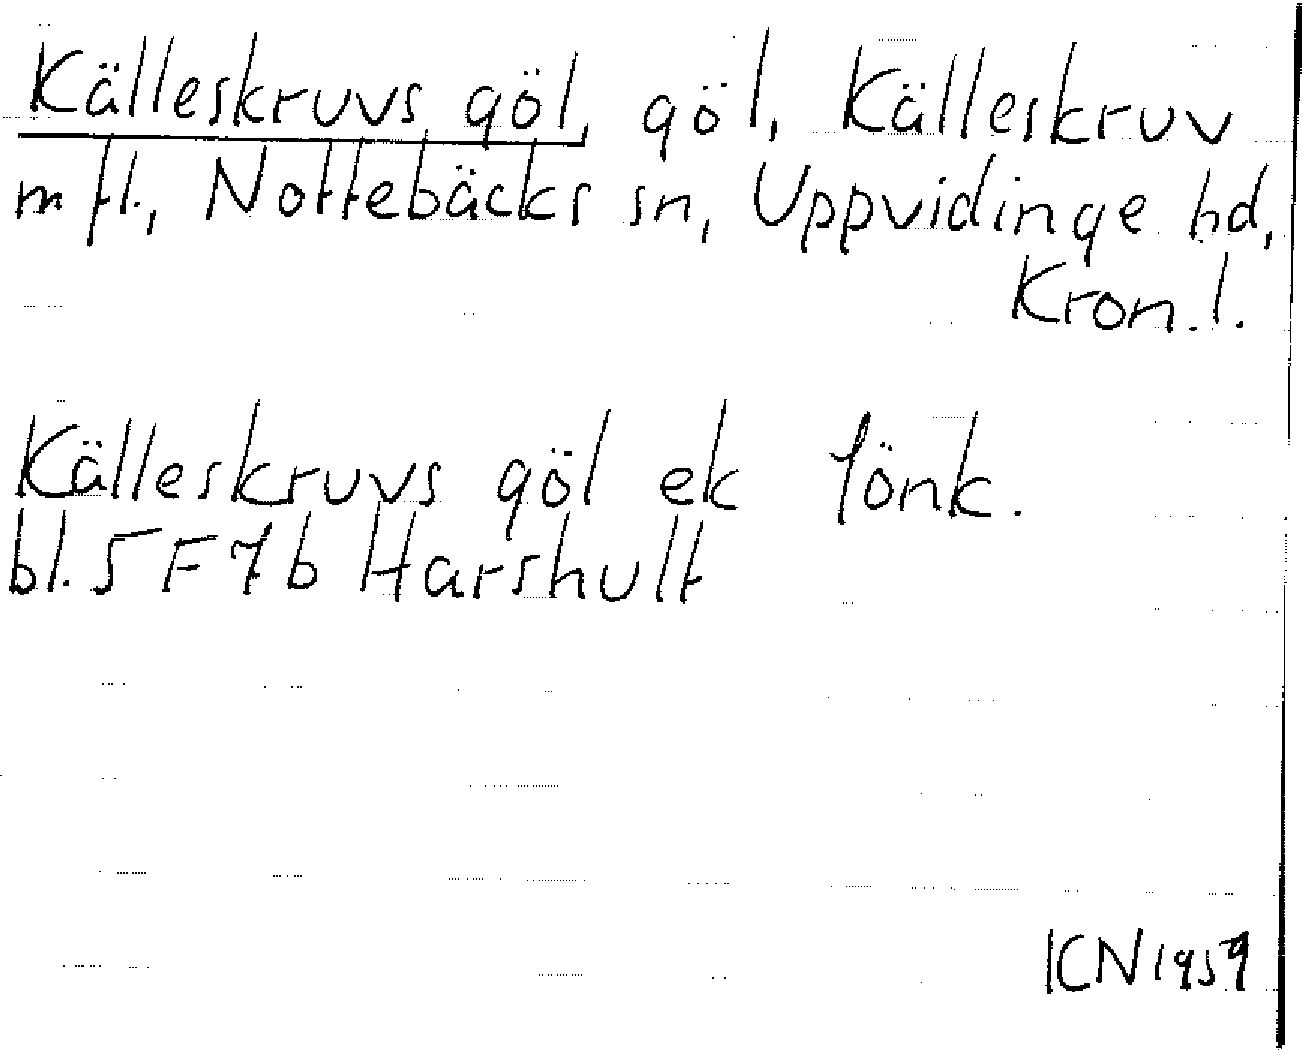 Källeskruvs göl, göl, Källeskruv
m fl., Nottebäcks sn, Uppvidinge hd,
Kron.l.
Källeskruvs göl ek Jönk.
bl. 5 F 7 b Harshult
ICN 1959